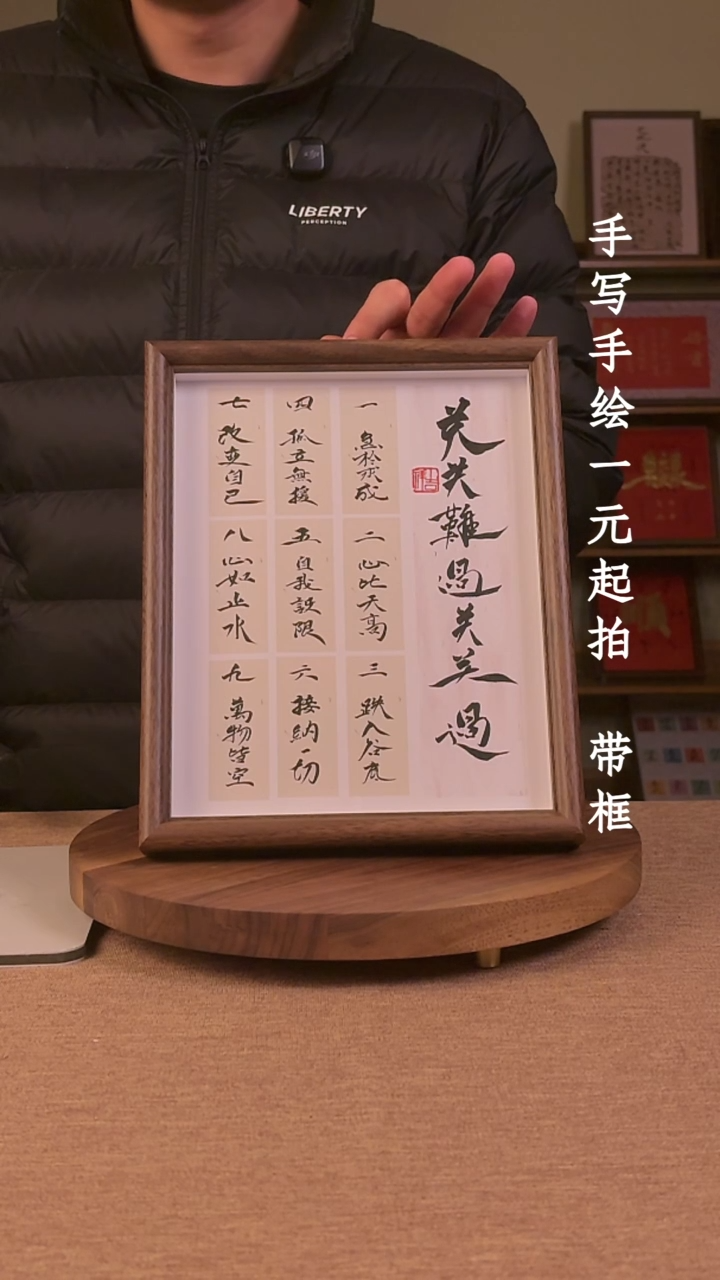 LIBERTY
PERCEPTION
手写手绘一元起拍 带框
关关難過关关過
一 急於求成
二 心比天高
三 跌入谷底
四 孤立無援
五 自我設限
六 接納一切
七 改变自己
八 心如止水
九 萬物皆空